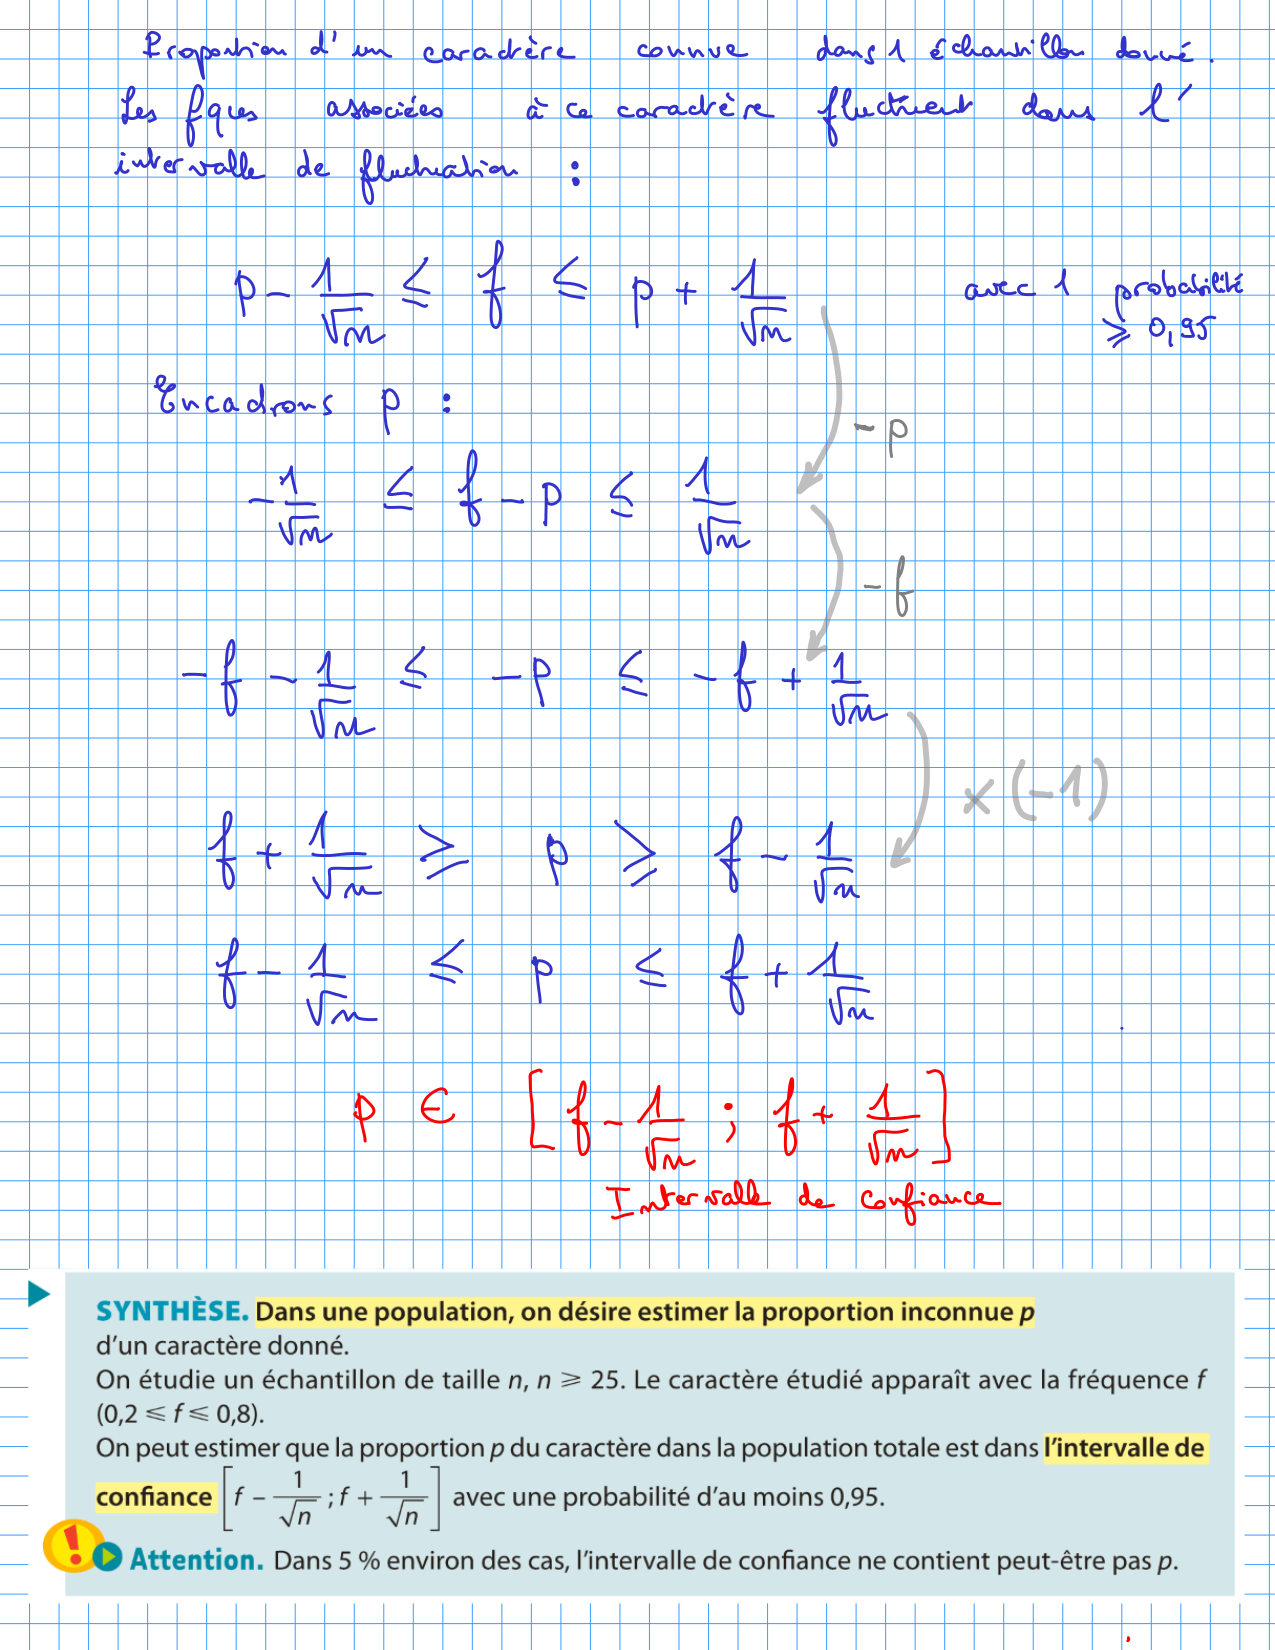 Proportion d'un caractère connue dans 1 échantillon donné.
Les fques associées à ce caractère fluctuent dans l'
intervalle de fluctuation :
p - 1/√n ≤ f ≤ p + 1/√n avec 1 probabilité
≥ 0,95
Encadrons p :
- p
- 1/√n ≤ f - p ≤ 1/√n
- f
- f - 1/√n ≤ - p ≤ - f + 1/√n
× (-1)
f + 1/√n ≥ p ≥ f - 1/√n
f - 1/√n ≤ p ≤ f + 1/√n
p ∈ [f - 1/√n ; f + 1/√n]
Intervalle de confiance
SYNTHÈSE. Dans une population, on désire estimer la proportion inconnue p
d'un caractère donné.
On étudie un échantillon de taille n, n ⩾ 25. Le caractère étudié apparaît avec la fréquence f
(0,2 ⩽ f ⩽ 0,8).
On peut estimer que la proportion p du caractère dans la population totale est dans l'intervalle de
confiance [f - 1/√n ; f + 1/√n] avec une probabilité d'au moins 0,95.
! Attention. Dans 5 % environ des cas, l'intervalle de confiance ne contient peut-être pas p.